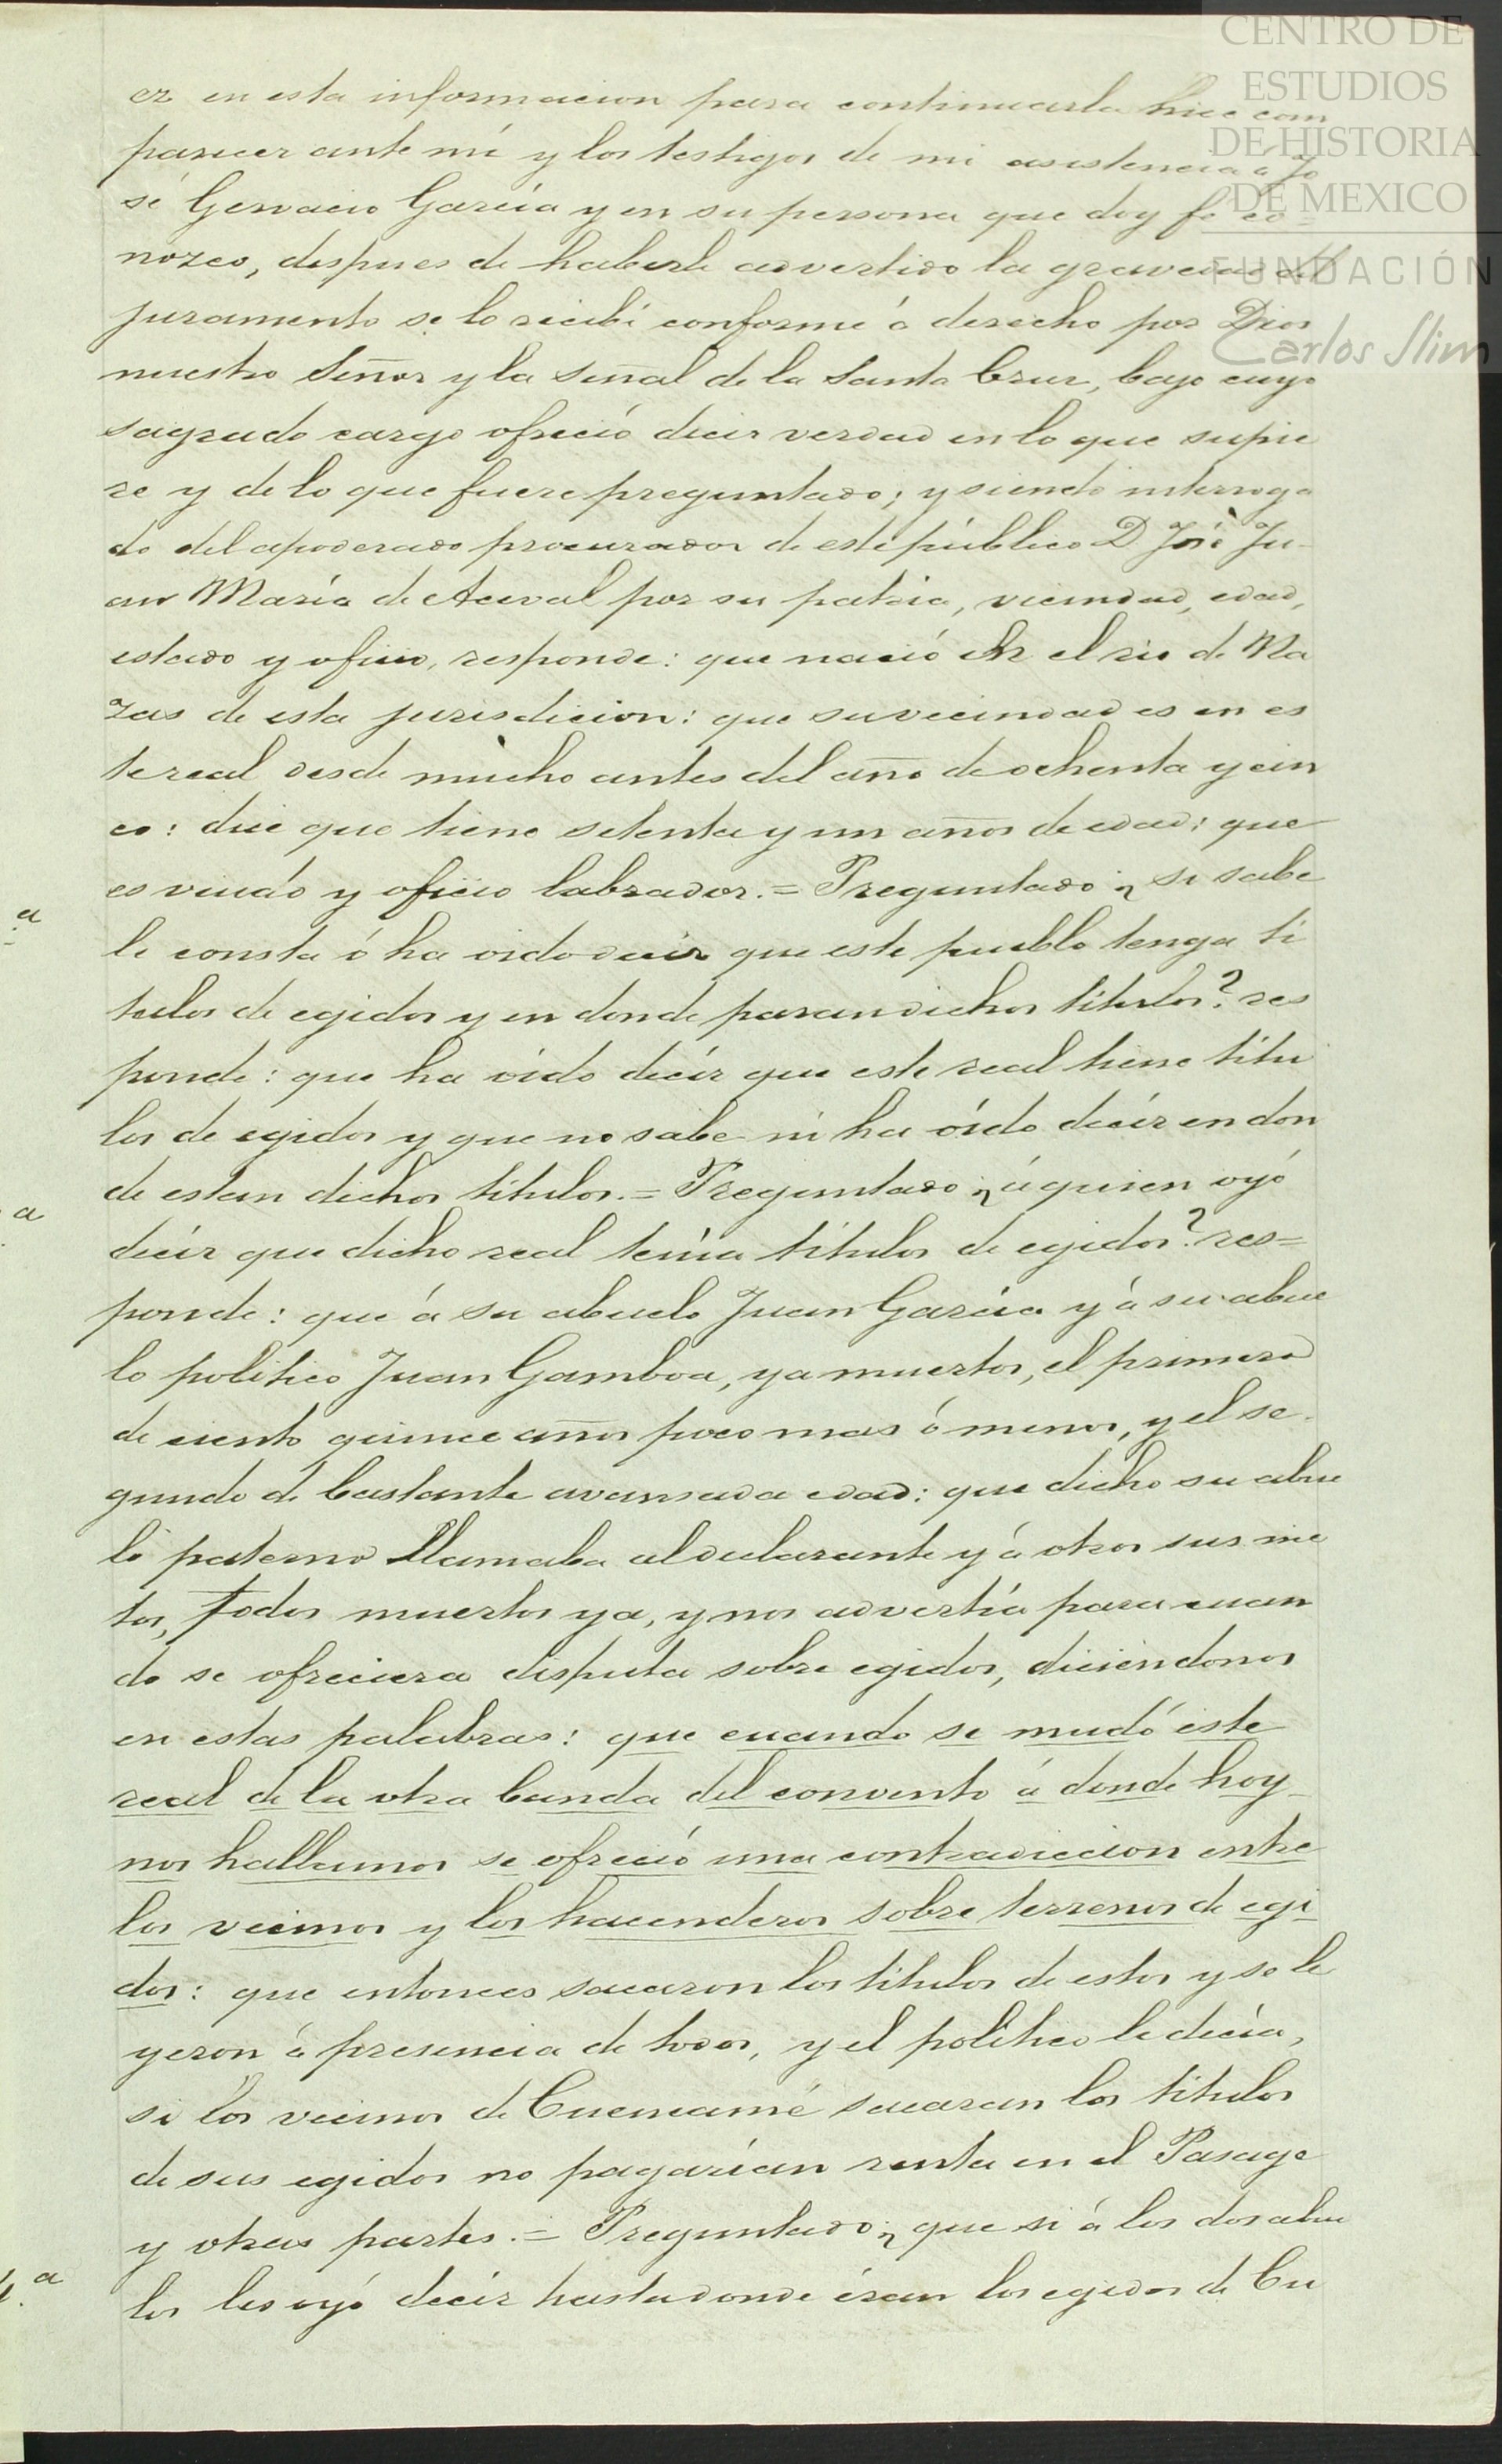 CENTRO DE
ESTUDIOS
DE HISTORIA
DE MEXICO
FUNDACIÓN
Carlos Slim
er en esta informacion para continuarla hice com
parecer ante mí y los testigos de mi asistencia á Jo
sé Gervacio García y en su persona que doy fé co=
nozco, despues de haberle advertido la gravedad del
juramento se lo recibí conforme á derecho por Dios
nuestro Señor y la señal de la Santa Cruz, bajo cuyo
sagrado cargo ofreció decir verdad en lo que supie
re y de lo que fuere preguntado; y siendo interroga
do del apoderado procurador de este público D. José Ju-
an María de Aceval por su patria, vecindad, edad,
estado y oficio, responde: que nació en el rio de Na
zas de esta jurisdicion: que su vecindad es en es
te real desde mucho antes del año de ochenta y cin
co: dice que tiene setenta y un años de edad: que
es viudo y oficio labrador.= Preguntado ¿ si sabe
a
le consta ó ha oido decir que este pueblo tenga tí
tulos de egidos y en donde paran dichos títulos? res
ponde: que ha oído decír que este real tiene títu
los de egidos y que no sabe ni ha oído decír en don
de estan dichos títulos.= Preguntado ¿ á quien oyó
a
decír que dicho real tenía títulos de egidos? res=
ponde: que á su abuelo Juan García y á su abue
lo político Juan Gamboa, ya muertos, el primero
de ciento quince años poco mas ó menos, y el se-
gundo de bastante avansada edad: que dicho su abue
lo paterno llamaba al declarante y á otros sus nie
tos, todos muertos ya, y nos advertía para cuan
do se ofreciera disputa sobre egidos, diciéndonos
en estas palabras: que cuando se mudó este
real de la otra banda del convento á donde hoy
nos hallamos se ofreció una contradiccion entre
los vecinos y los hacenderos sobre terrenos de egi-
dos: que entonces sacaron los títulos de estos y se le
yeron á presencia de todos, y el político le decía,
si los vecinos de Cuencamé sacaran los títulos
de sus egidos no pagarían renta en el Pasage
y otras partes.= Preguntado ¿ que si á los dos abue
a
los les oyó decír hasta donde éran los egidos de Cu